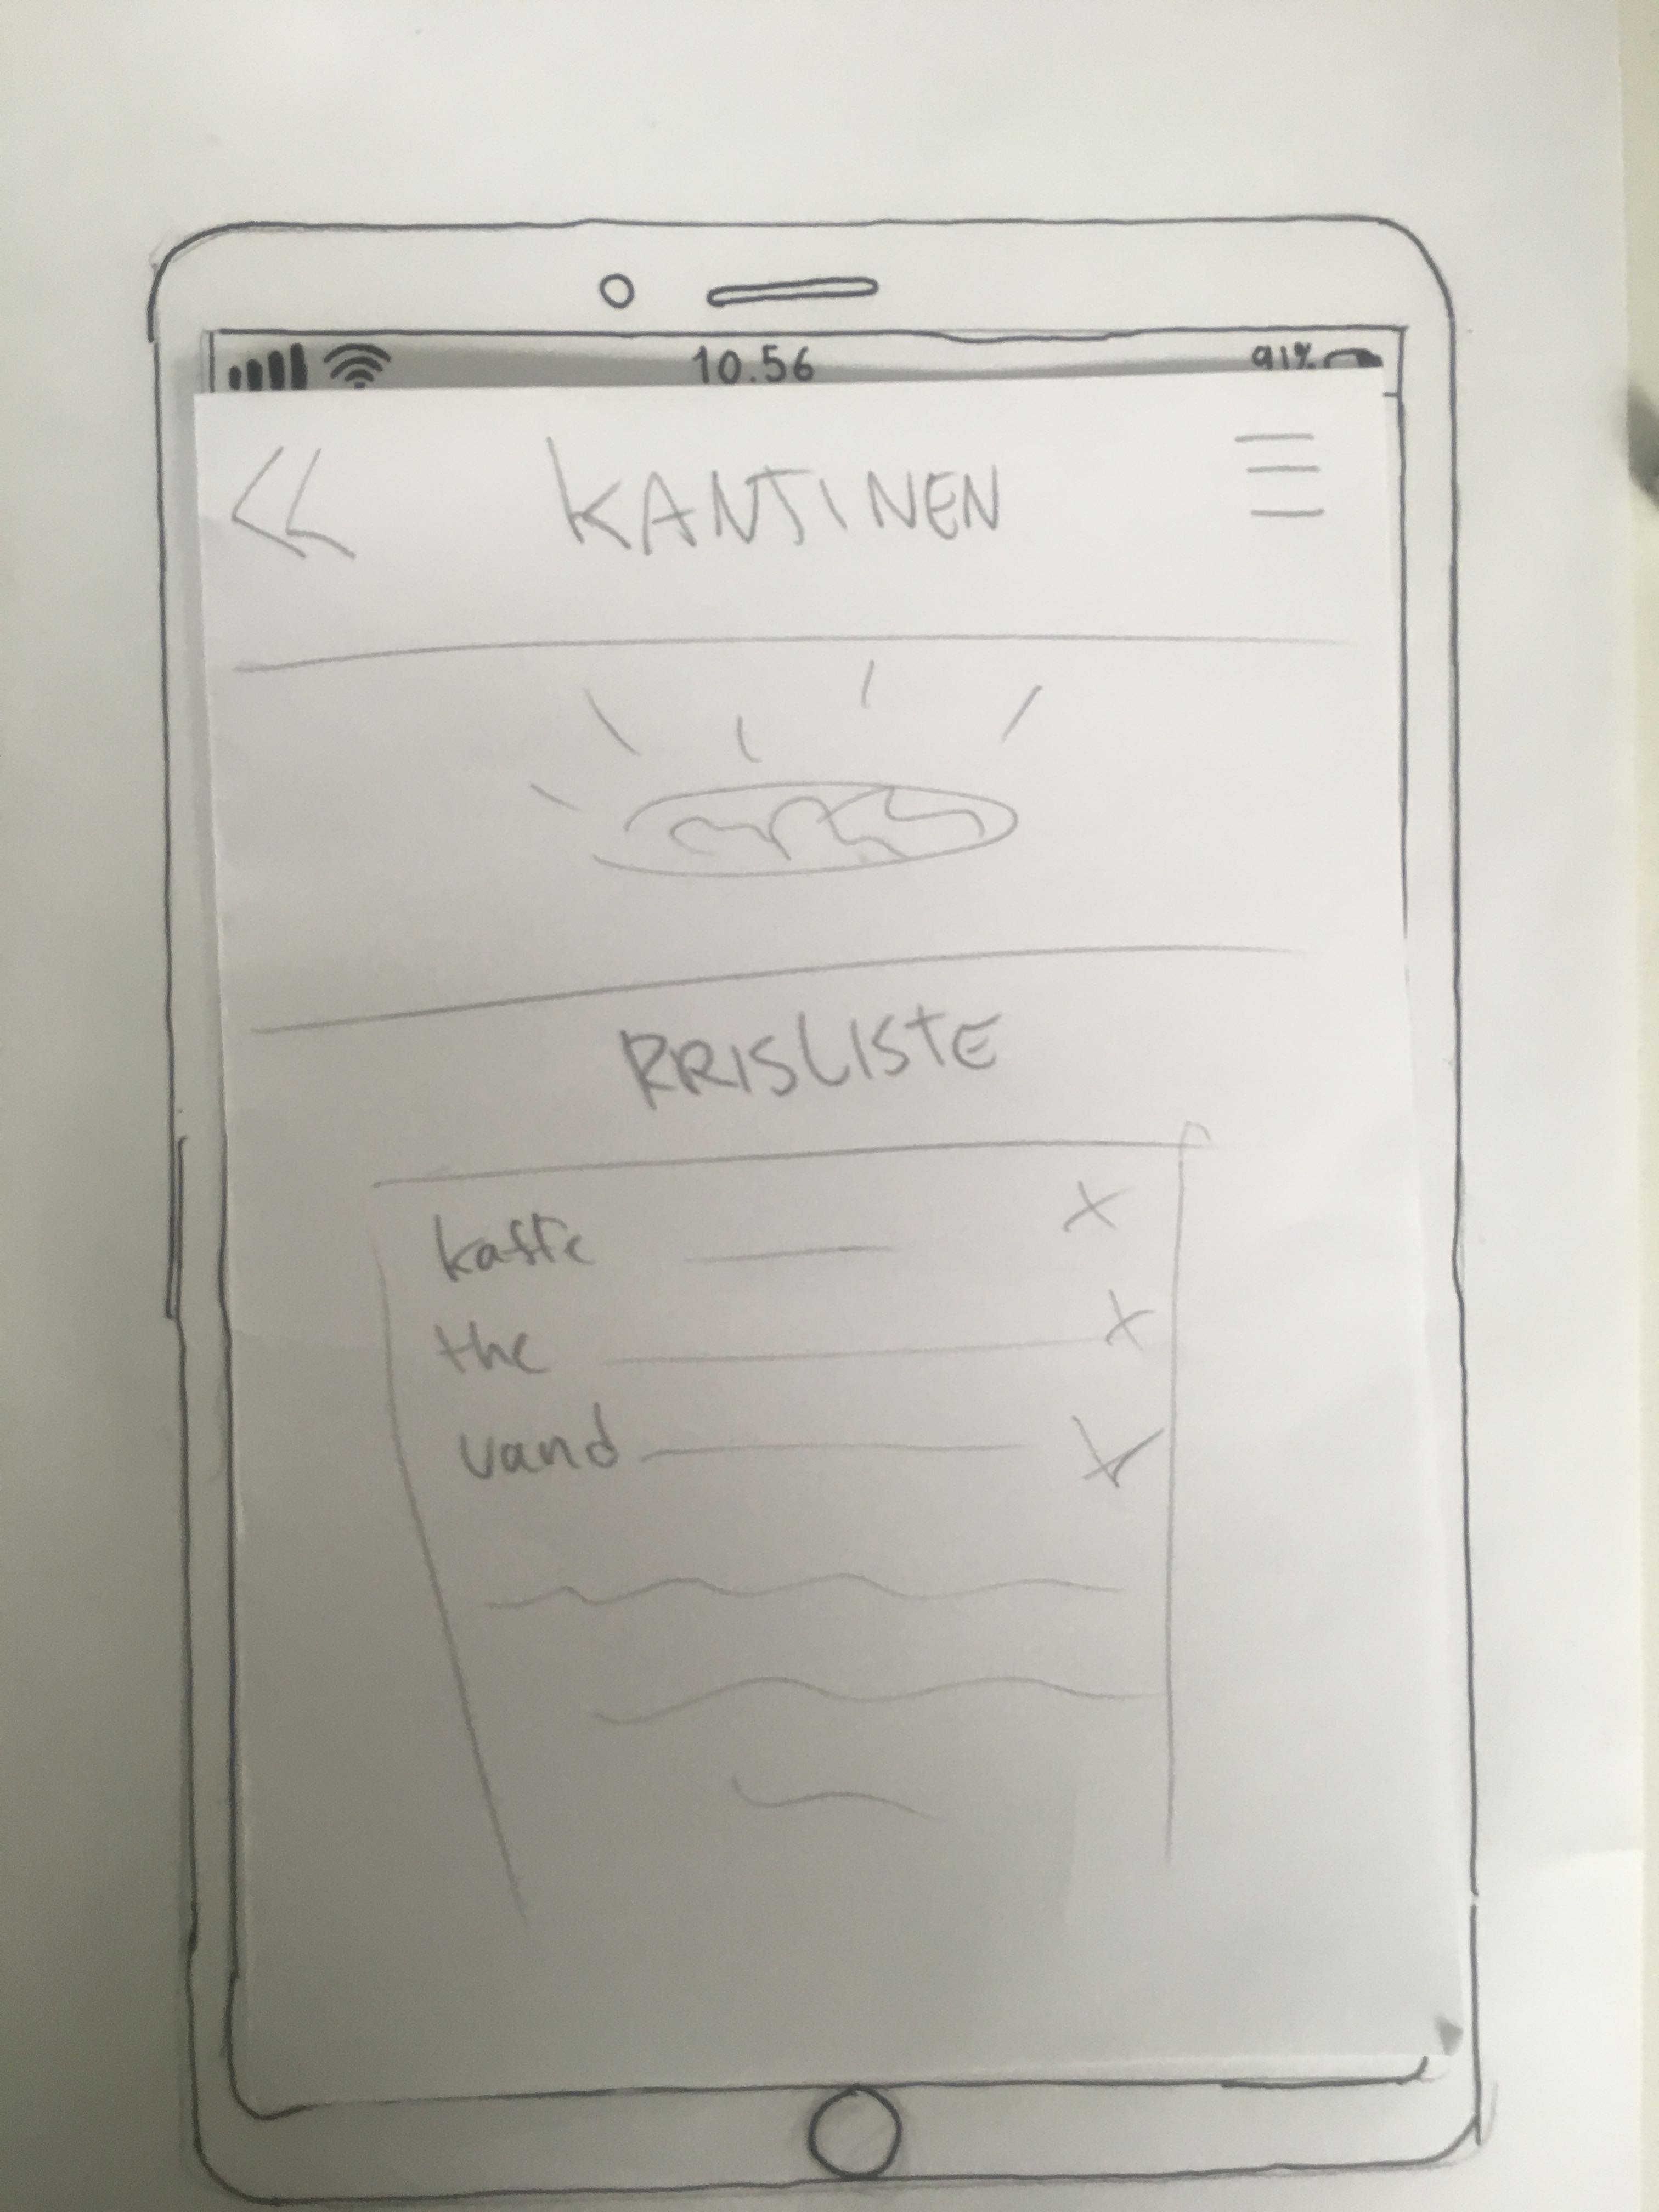 10.56 91%
KANTINEN
PRISLISTE
kaffe X
the X
vand X